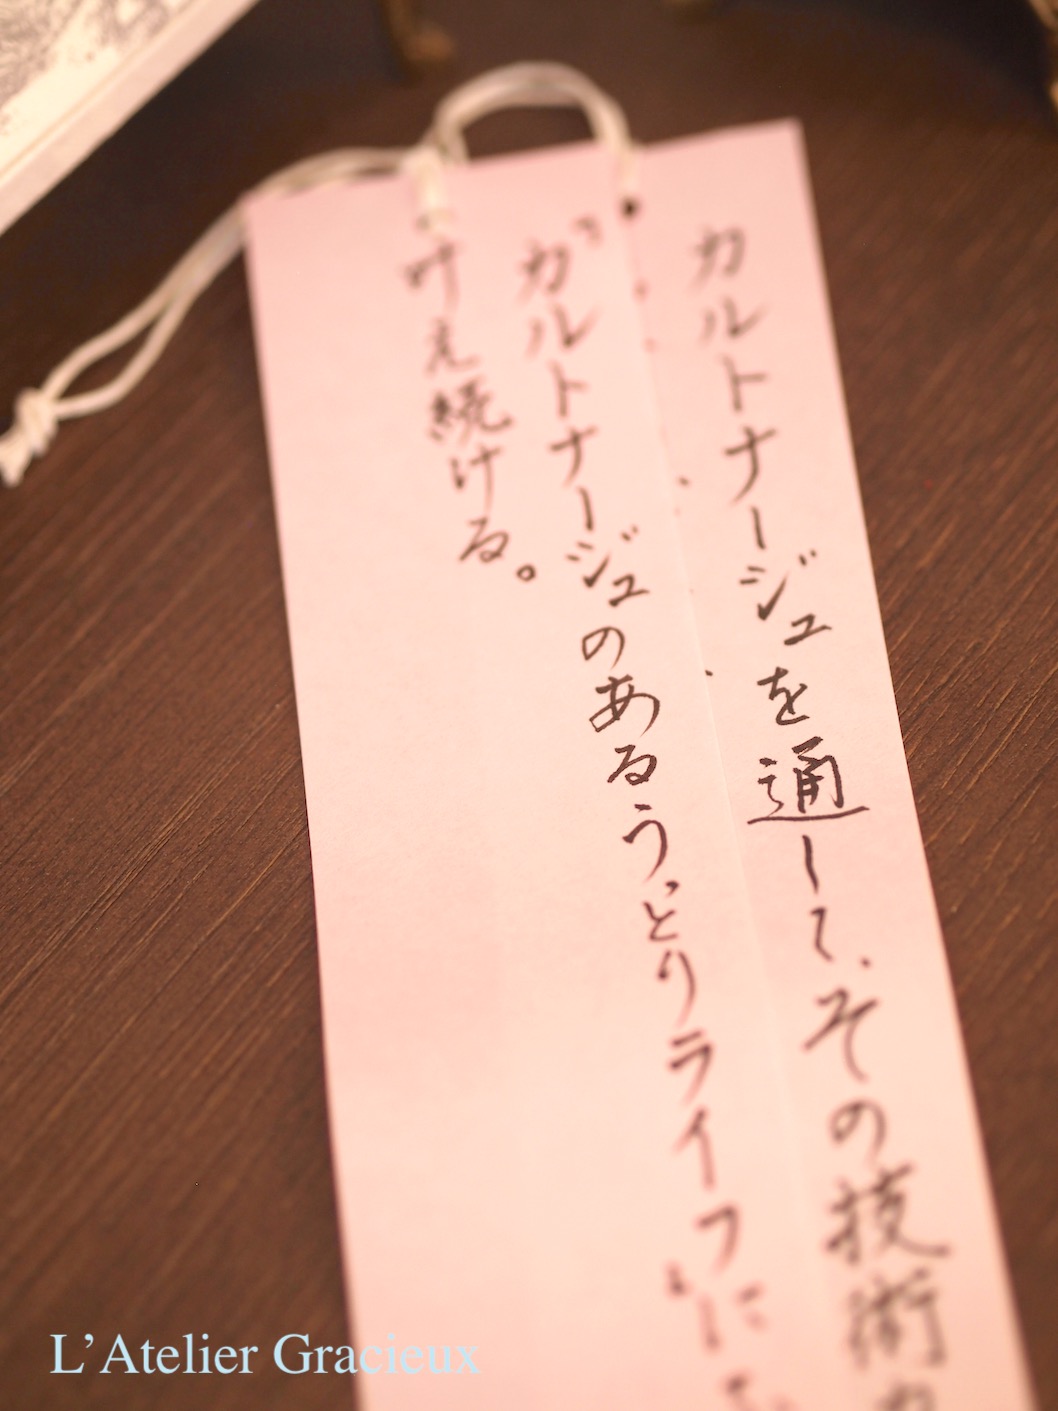 カルトナージュを通して、その技術
“カルトナージュのあるうっとりライフ”に
叶え続ける。
L'Atelier Gracieux